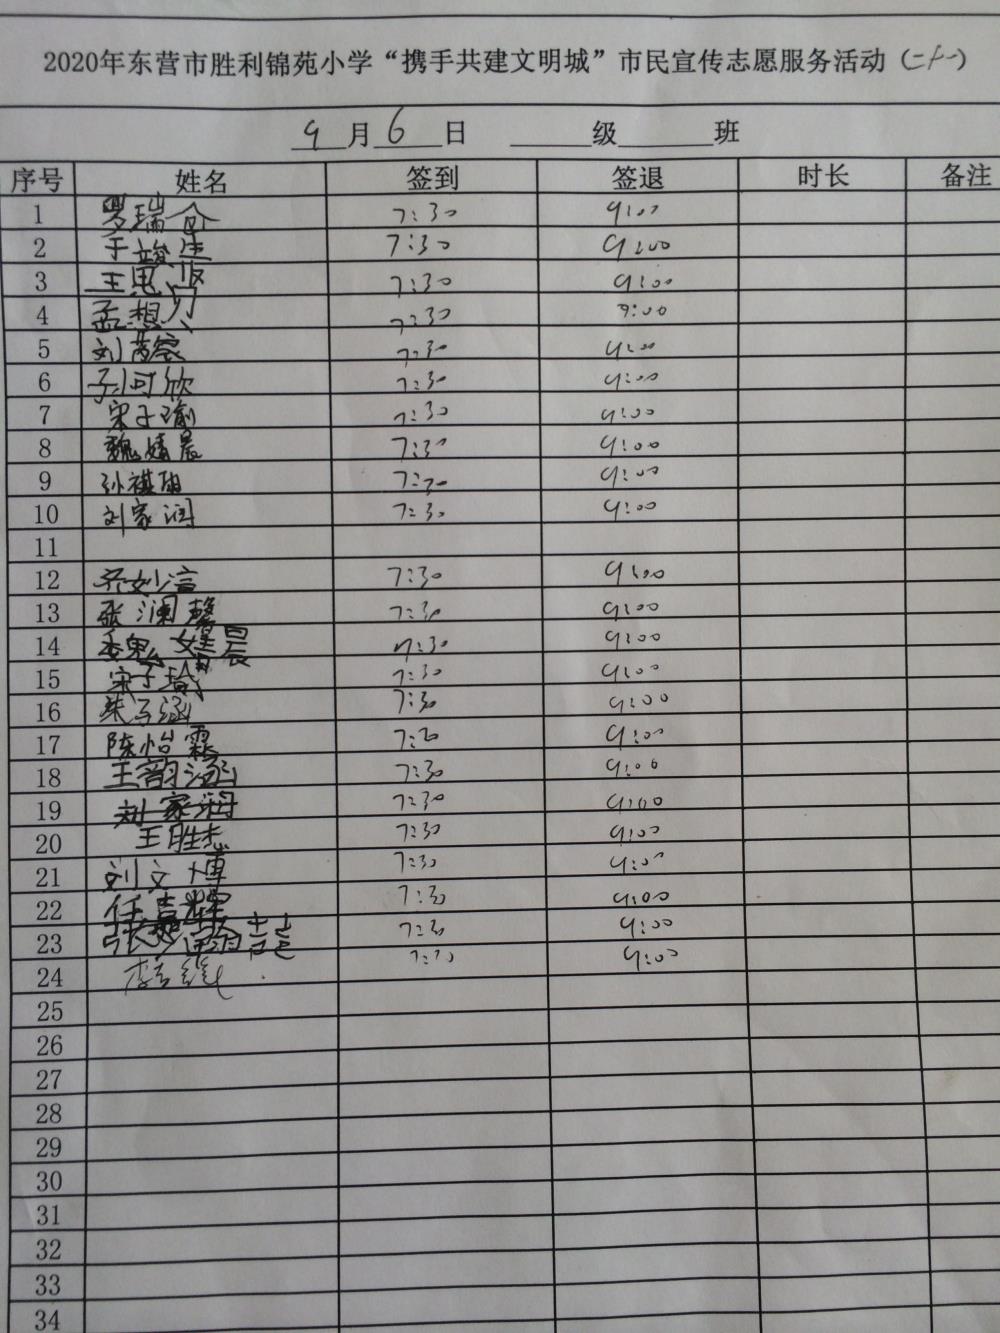 2020年东营市胜利锦苑小学“携手共建文明城”市民宣传志愿服务活动（二十一）
9月6日 级 班
序号 姓名 签到 签退 时长 备注
1 罗瑞 7:30 9:00
2 于 7:30 9:00
3 王思 7:30 9:00
4 孟想 7:30 9:00
5 刘 7:30 9:00
6 孙可欣 7:30 9:00
7 宋子瑜 7:30 9:00
8 魏婧晨 7:30 9:00
9 孙祺 7:30 9:00
10 刘家润 7:30 9:00
11
12 齐妙言 7:30 9:00
13 张澜馨 7:30 9:00
14 魏婧晨 7:30 9:00
15 宋子瑜 7:30 9:00
16 朱子涵 7:30 9:00
17 陈怡霖 7:30 9:00
18 王韵涵 7:30 9:00
19 刘家润 7:30 9:00
20 王胜杰 7:30 9:00
21 刘文博 7:30 9:00
22 任嘉辉 7:30 9:00
23 张 7:30 9:00
24 李 7:30 9:00
25
26
27
28
29
30
31
32
33
34